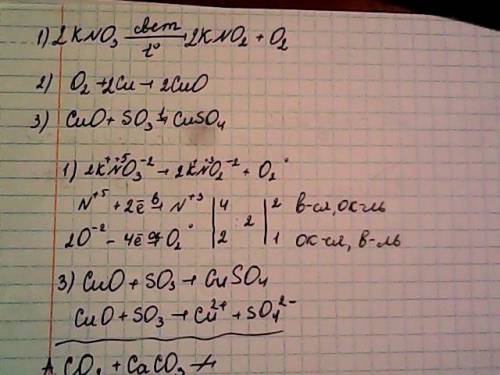 1) 2KNO₃ —свет/t°→ 2KNO₂ + O₂
2) O₂ + 2Cu → 2CuO
3) CuO + SO₃ → CuSO₄
1) 2K⁺N⁺⁵O₃⁻² → 2K⁺N⁺³O₂⁻² + O₂°
N⁺⁵ + 2ē → N⁺³ | 4 | 2 | 2 в-ся, ок-ль
2O⁻² - 4ē → O₂° | 2 | 1 ок-ся, в-ль
3) CuO + SO₃ → CuSO₄
CuO + SO₃ → Cu²⁺ + SO₄²⁻
A. CO₂ + CaCO₃ ↛